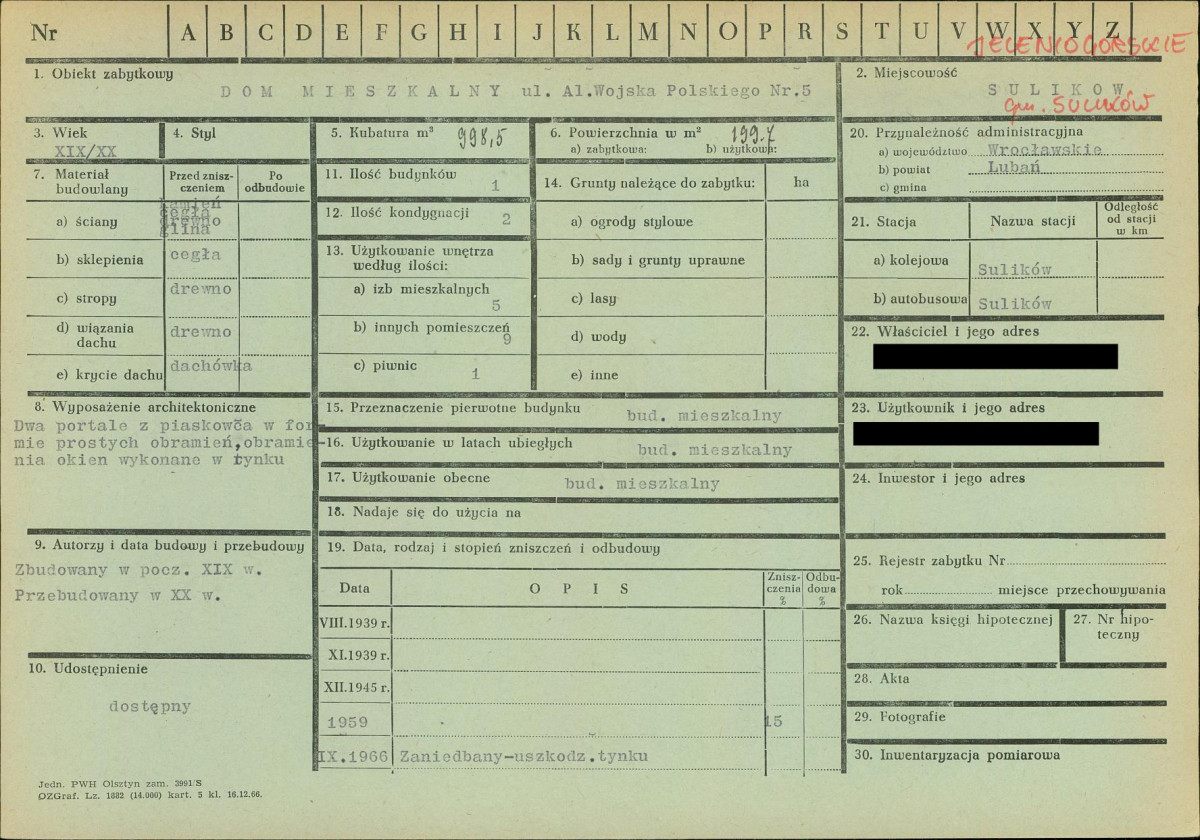 Nr A B C D E F G H I J K L M N O P R S T U V W X Y Z
JELENIOGÓRSKIE
1. Obiekt zabytkowy
DOM MIESZKALNY ul. Al.Wojska Polskiego Nr.5
2. Miejscowość
SULIKÓW
gm. SULIKÓW
3. Wiek
XIX/XX
4. Styl
5. Kubatura m³ 998,5
6. Powierzchnia w m² 199.7
a) zabytkowa: b) użytkowa:
7. Materiał budowlany
Przed zniszczeniem
Po odbudowie
a) ściany
kamień
cegła
drewno
glina
b) sklepienia cegła
c) stropy drewno
d) wiązania dachu drewno
e) krycie dachu dachówka
8. Wyposażenie architektoniczne
Dwa portale z piaskowca w for
mie prostych obramień,obramie-
nia okien wykonane w tynku
9. Autorzy i data budowy i przebudowy
Zbudowany w pocz. XIX w.
Przebudowany w XX w.
10. Udostępnienie
dostępny
11. Ilość budynków 1
12. Ilość kondygnacji 2
13. Użytkowanie wnętrza
według ilości:
a) izb mieszkalnych 5
b) innych pomieszczeń 9
c) piwnic 1
14. Grunty należące do zabytku: ha
a) ogrody stylowe
b) sady i grunty uprawne
c) lasy
d) wody
e) inne
15. Przeznaczenie pierwotne budynku bud. mieszkalny
16. Użytkowanie w latach ubiegłych bud. mieszkalny
17. Użytkowanie obecne bud. mieszkalny
18. Nadaje się do użycia na
19. Data, rodzaj i stopień zniszczeń i odbudowy
Data OPIS Zniszczenia % Odbudowa %
VIII.1939 r.
XI.1939 r.
XII.1945 r.
1959 15
IX.1966 Zaniedbany-uszkodz.tynku
20. Przynależność administracyjna
a) województwo Wrocławskie
b) powiat Lubań
c) gmina
21. Stacja Nazwa stacji Odległość od stacji w km
a) kolejowa Sulików
b) autobusowa Sulików
22. Właściciel i jego adres
23. Użytkownik i jego adres
24. Inwestor i jego adres
25. Rejestr zabytku Nr
rok miejsce przechowywania
26. Nazwa księgi hipotecznej
27. Nr hipoteczny
28. Akta
29. Fotografie
30. Inwentaryzacja pomiarowa
Jedn. PWH Olsztyn zam. 3991/S
OZGraf. Lz. 1882 (14.000) kart. 5 kl. 16.12.66.